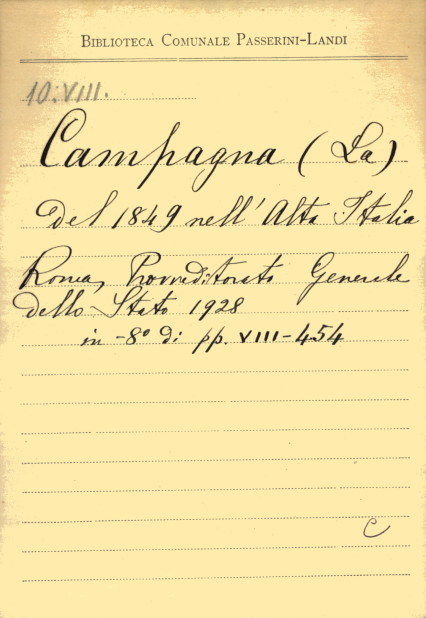 BIBLIOTECA COMUNALE PASSERINI-LANDI
10.VIII.
Campagna (La)
del 1849 nell' Alta Italia
Roma, Provveditorato Generale
dello Stato 1928
in -8° di pp. VIII-454
C